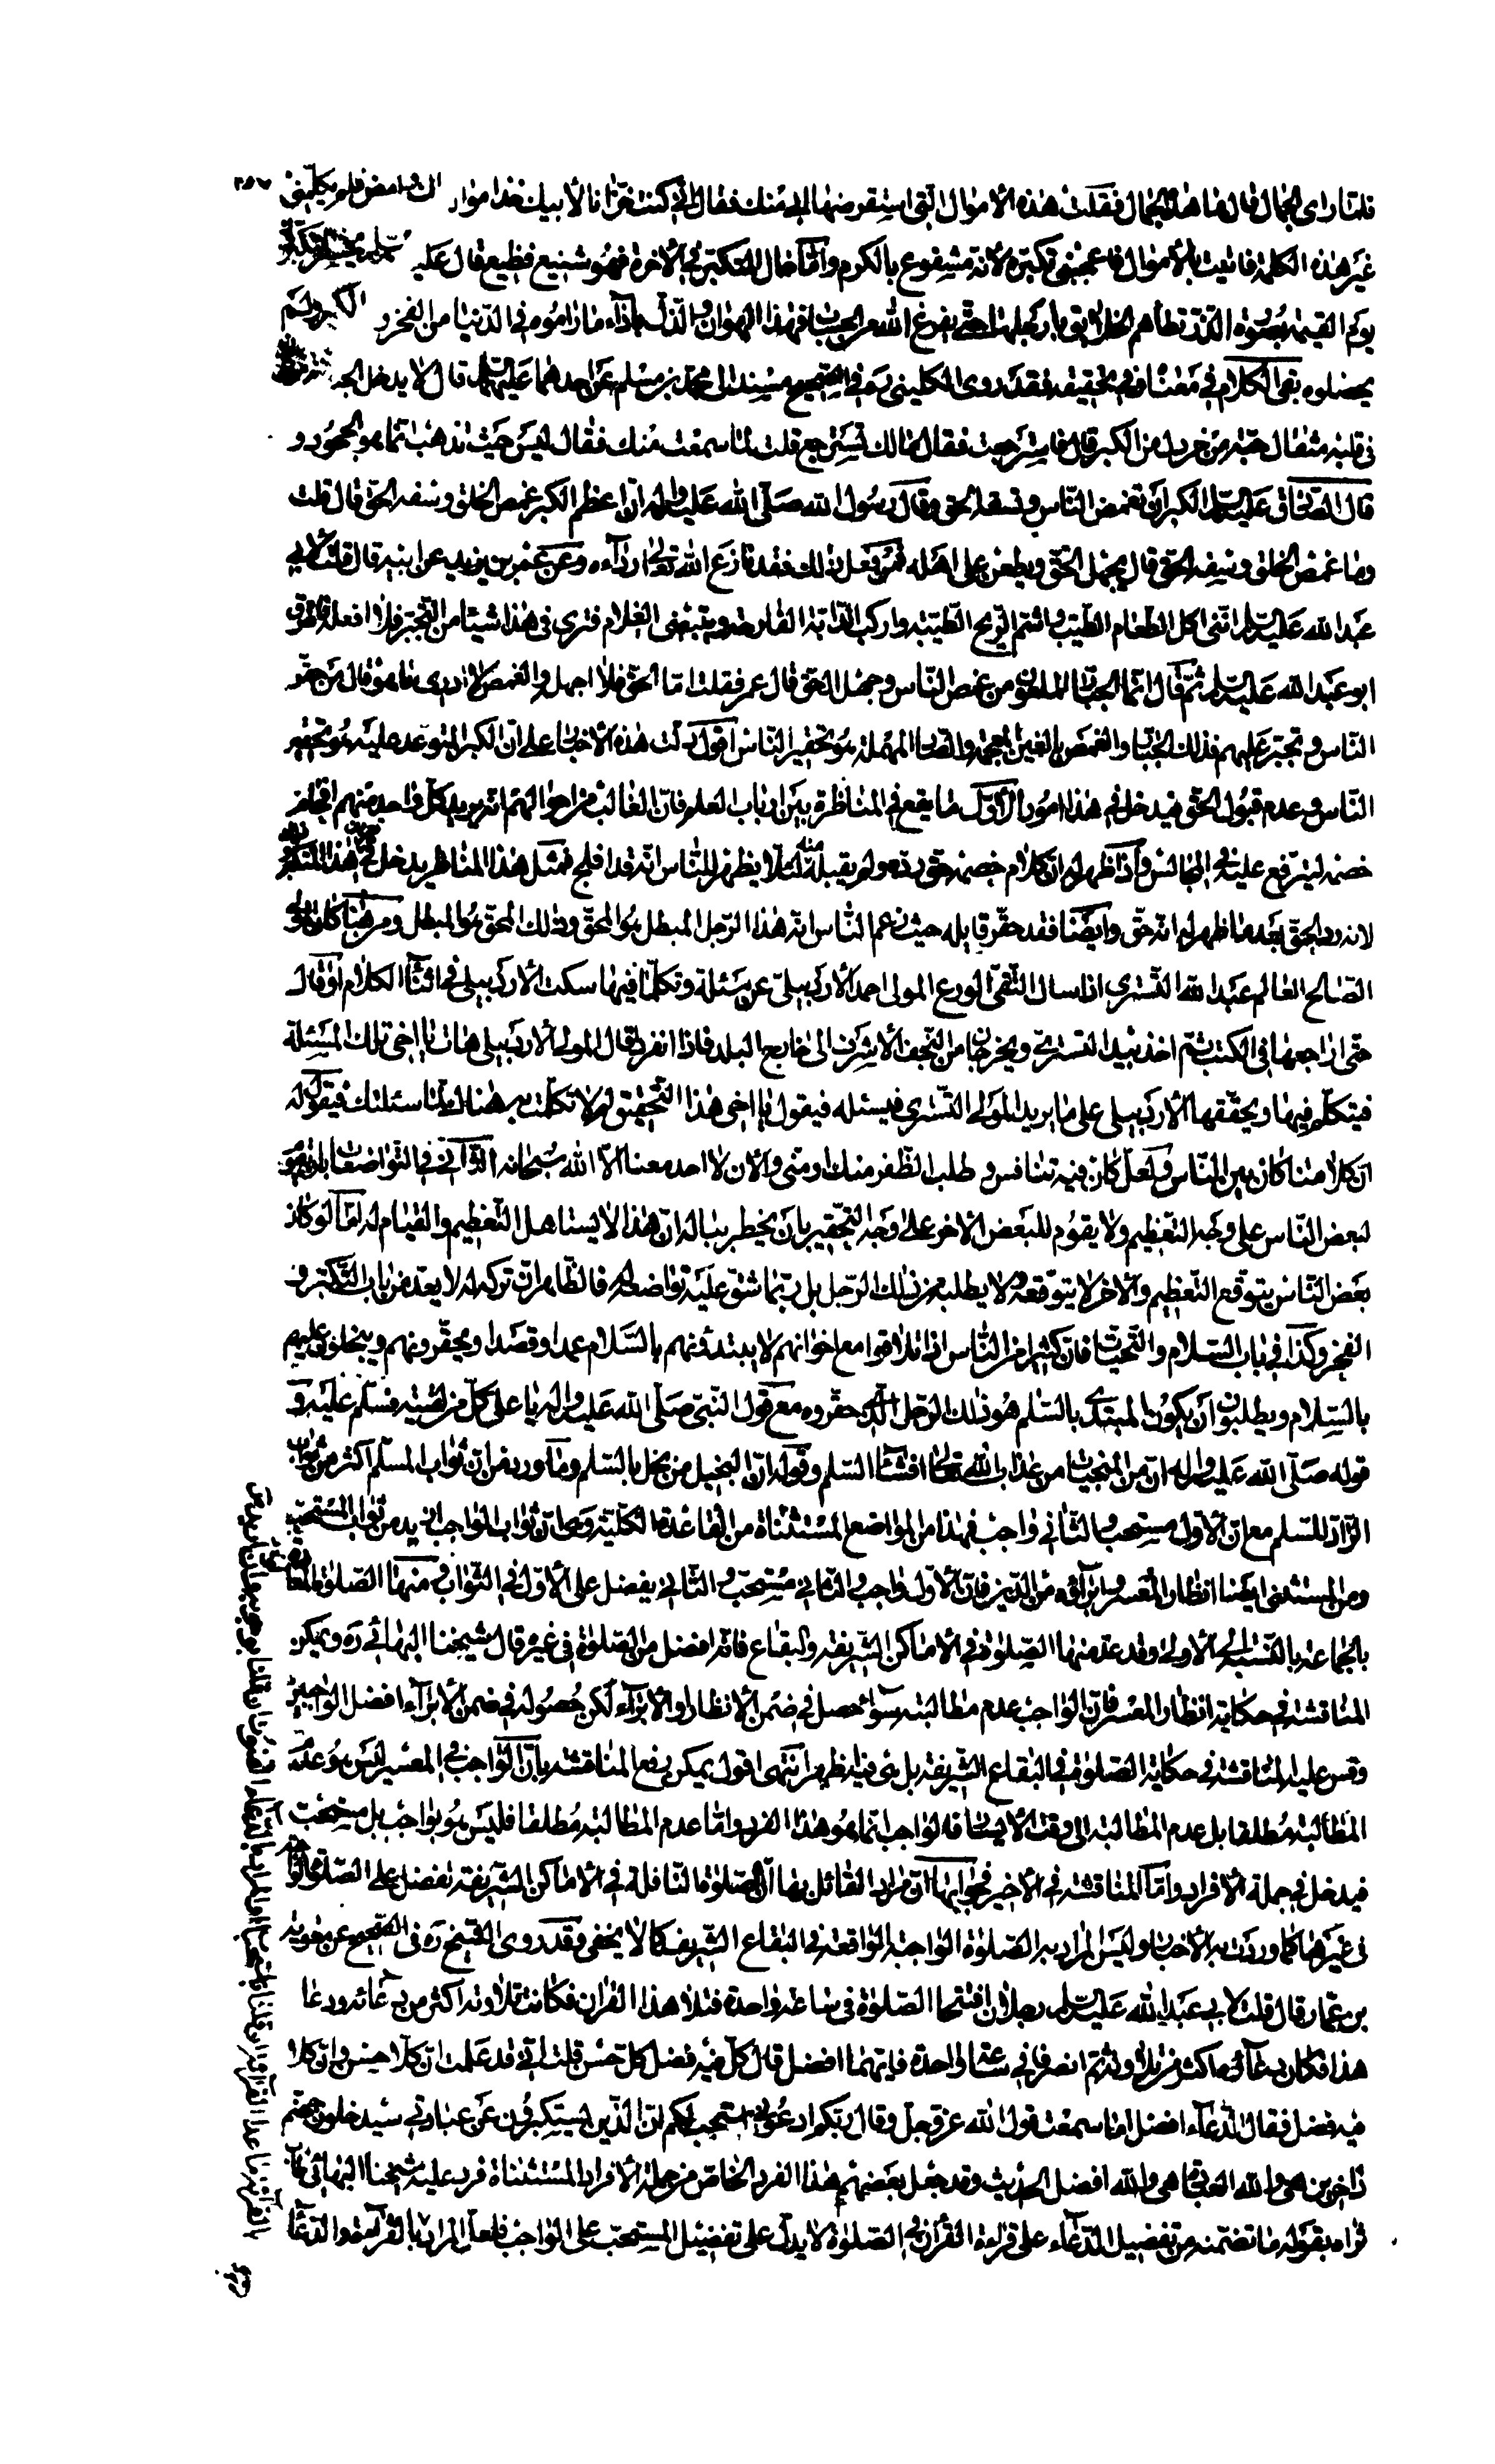 فلما رأى الجمال قال ما هذه الجمال فقلت هذه الأموال التي استقرضها ابي منك فقال اني كنت خزانا لأبيك فخذ أموال فلم يكلمني
غير هذه الكلمة فاتيت بالأموال فاعجبني تكبره لأنه مشفوع بالكرم وأما حال المتكبر في الأخرة فهو شنيع فظيع قال عليه
يوم القيمة بصورة الذر تطأهم الخلائق بأرجلها حتى يفرغ الله من الحساب فهذا الهوان والذل بإزاء ما راموه في الدنيا من الفخر و
يحصلوه بقى الكلام في معناه وفي تحقيقه فقد روى الكليني ره في الصحيح مسندا الى محمد بن مسلم عن احدهما عليهما السلام قال لا يدخل الجنة
في قلبه مثقال حبة من خردل من الكبر قال فاسترجعت فقال مالك تسترجع قلت لما سمعت منك فقال ليس حيث تذهب انما هو الجحود و
قال الصادق عليه السلم الكبر ان تغمص الناس وتسفه الحق وقال رسول الله صلى الله عليه واله ان اعظم الكبر غمص الخلق وسفه الحق قال قلت
وما غمص الخلق وسفه الحق قال يجهل الحق ويطعن على اهله فمن فعل ذلك فقد نازع الله تعالى رداءه وعن عمر بن يزيد عن ابيه قال قلت لابي
عبد الله عليه السلم انني اكل الطعام الطيب واشم الريح الطيبة واركب الدابة الفارهة ويتبعني الغلام فترى في هذا شيئا من التجبر فلا افعله فاطرق
ابو عبد الله عليه السلم ثم قال انما الجبار الملعون من غمص الناس وجهل الحق قال عمر فقلت اما الحق فلا اجهله والغمص لا ادري ما هو قال من حقر
الناس وتجبر عليهم فذلك الجبار والغمص بالغين المعجمة والصاد المهملة هو تحقير الناس اقول دلت هذه الأخبار على ان الكبر المتوعد عليه هو تحقير
الناس وعدم قبول الحق فيدخل في هذا امور الأول ما يقع في المناظرة بين ارباب العلم فان الغالب من احوالهم انه يريد كل واحد منهم افحام
خصمه ليترفع عليه في المجالس واذا ظهر له ان كلام خصمه حق رده ولم يقبله لئلا يظهر للناس انه قد افلج فمثل هذا المناظر يدخل في هذا المتكبر
لانه رد الحق بعد ما ظهر له انه حق وايضا فقد حقر قايله حيث زعم الناس انه هذا الرجل المبطل هو المحق وذلك المحق هو المبطل ومن هنا كان المولى
الصالح العالم عبد الله التستري اذا سال التقي الورع المولى احمد الأردبيلي عن مسئلة وتكلما فيها سكت الأردبيلي في اثناء الكلام او قال
حتى اراجعها في الكتب ثم اخذ بيد التستري ويخرجان من النجف الأشرف الى خارج البلد فاذا انفردا قال المولى الأردبيلي هات يا اخي تلك المسئلة
فيتكلم فيها ويحققها الأردبيلي على ما يريد المولى التستري فيسئله فيقول يا اخي هذا التحقيق لم لا تكلمت به هناك لما سئلتك فيقول له
ان كلامنا كان بين الناس ولعل كان فيه تنافس وطلب الظفر منك او مني والان لا احد معنا الا الله سبحانه الثاني في التواضعات بان يقوم
لبعض الناس على وجه التعظيم ولا يقوم للبعض الأخر على وجه التحقير بان يخطر بباله ان هذا لا يستاهل التعظيم والقيام له اما لو كان
بعض الناس يتوقع التعظيم والاخر لا يتوقعه ولا يطلبه من ذلك الرجل بل ربما شق عليه تواضعه له فالظاهر ان تركه له لا يعد من باب التكبر و
الفخر وكذا في باب السلام والتحيات فان كثيرا من الناس اذا تلاقوا مع اخوانهم لا يبتدؤنهم بالسلام عمدا وقصدا ويحقرونهم ويبخلون عليهم
بالسلام ويطلبون ان يكون المبتدي بالسلم هو ذلك الرجل الذي حقروه مع قول النبي صلى الله عليه واله يا على كل من لقيته فسلم عليه و
قوله صلى الله عليه واله ان من المنجيات من عذاب الله تعالى افشاء السلم وقوله ان البخيل من بخل بالسلم وما ورد من ان ثواب المسلم اكثر من ثواب
الراد للسلم مع ان الأول مستحب والثاني واجب فهذا من المواضع المستثناة من القاعدة الكلية وهي ان ثواب الواجب ازيد من ثواب المستحب
ومن المستثنى ايضا انظار المعسر وابراؤه من الدين فان الأول واجب والثاني مستحب والثاني يفضل على الأول في الثواب ومنها الصلوة المعادة
بالجماعة بالنسبة الى الأولى وقد عد منها الصلوة في الأماكن الشريفة والبقاع فانه افضل من الصلوة في غيره قال شيخنا البهائي ره ويمكن
المناقشة في حكاية انظار المعسر فان الواجب عدم مطالبته سواء حصل في ضمن الأنظار او الأبراء لكن حصوله في ضمن الأبراء افضل الواجبين
وقس عليه المناقشة في حكاية الصلوة في البقاع الشريفة بل هي فيه اظهر انتهى اقول يمكن دفع المناقشة بان الواجب في المعسر ليس هو عدم
المطالبة مطلقا بل عدم المطالبة الى وقت الأيسار فالواجب انما هو هذا الفرد واما عدم المطالبة مطلقا فليس هو بواجب بل مستحب
فيدخل في جملة الأفراد واما المناقشة في الأخير فجوابها ان مراد القائل بها ان الصلوة النافلة في الأماكن الشريفة تفضل على الصلوة
في غيرها كما وردت به الأخبار وليس المراد به الصلوة الواجبة الواقعة في البقاع الشريفة كما لا يخفى وقد روى الشيخ ره في الصحيح عن معوية
بن عمار قال قلت لابي عبد الله عليه السلم رجلان افتتحا الصلوة في ساعة واحدة فتلا هذا القران فكانت تلاوته اكثر من دعائه ودعا
هذا فكان دعاؤه اكثر من تلاوته ثم انصرفا في ساعة واحدة فايهما افضل قال كل فيه فضل كل حسن قلت اني قد علمت ان كلا حسن وان كلا
فيه فضل فقال الدعاء افضل اما سمعت قول الله عز وجل وقال ربكم ادعوني استجب لكم ان الذين يستكبرون عن عبادتي سيدخلون جهنم
داخرين هي والله العبادة هي والله افضل الحديث وقد جعل بعضهم هذا الفرد الخاص من جملة الأفراد المستثناة فرد عليه شيخنا البهائي
ثراه بقوله ما تضمنه من تفضيل الدعاء على قراءة القرآن في الصلوة لا يدل على تفضيل المستحب على الواجب فلعل المراد بالقراءة والدعاء